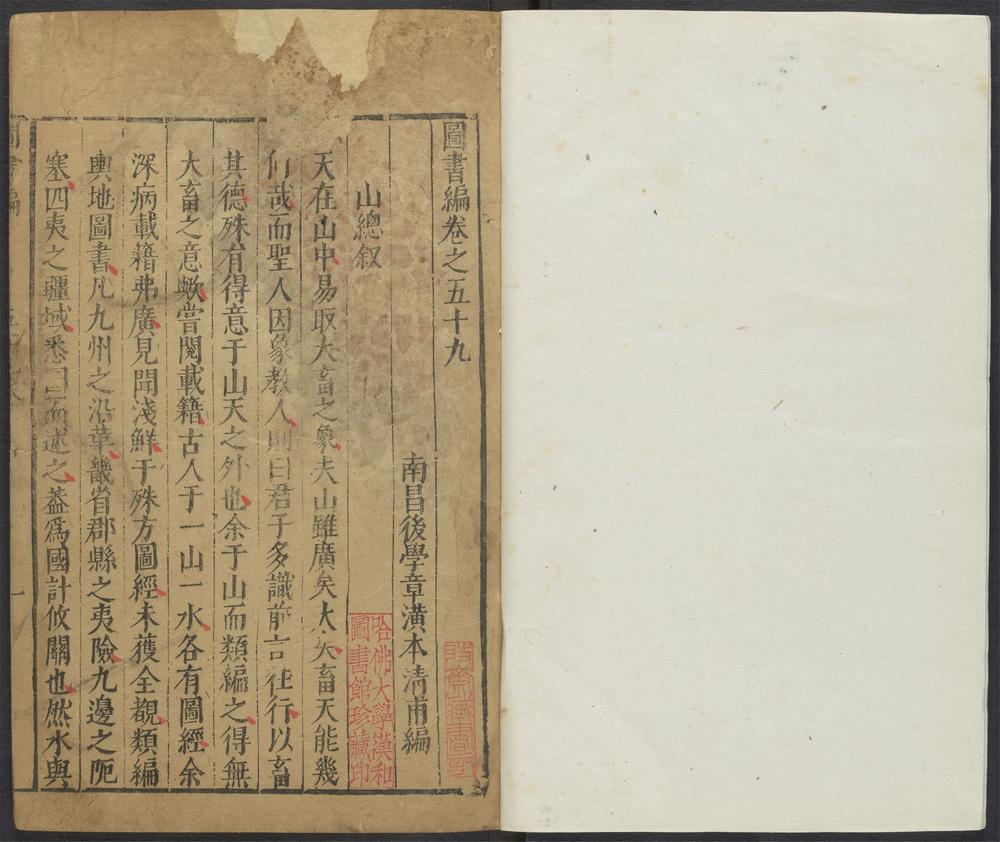 圖書編卷之五十九
南昌後學章潢本清甫編
山總叙
天在山中易取大畜之象夫山雖廣矣大矣畜天能幾
何哉而聖人因象教人則曰君子多識前言往行以畜
其德殊有得意于山天之外也余于山而類編之得無
大畜之意歟嘗閱載籍古人于一山一水各有圖經余
深病載籍弗廣見聞淺鮮于殊方圖經未獲全覩類編
輿地圖書凡九州之沿革畿省郡縣之夷險九邊之阨
塞四夷之疆域悉因而述之葢爲國計攸關也然水與
哈佛大學漢和
圖書館珍藏印